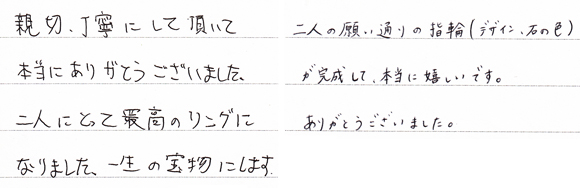 親切、丁寧にして頂いて
本当にありがとうございました、
二人にとって最高のリングに
なりました、一生の宝物にします.
二人の願い通りの指輪(デザイン、石の色)
が完成して、本当に嬉しいです。
ありがとうございました。